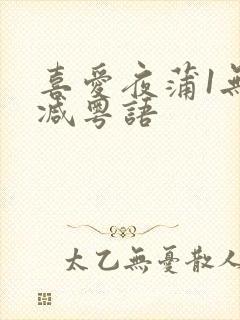 喜愛夜蒲1無
减粵語
太乙無憂散人